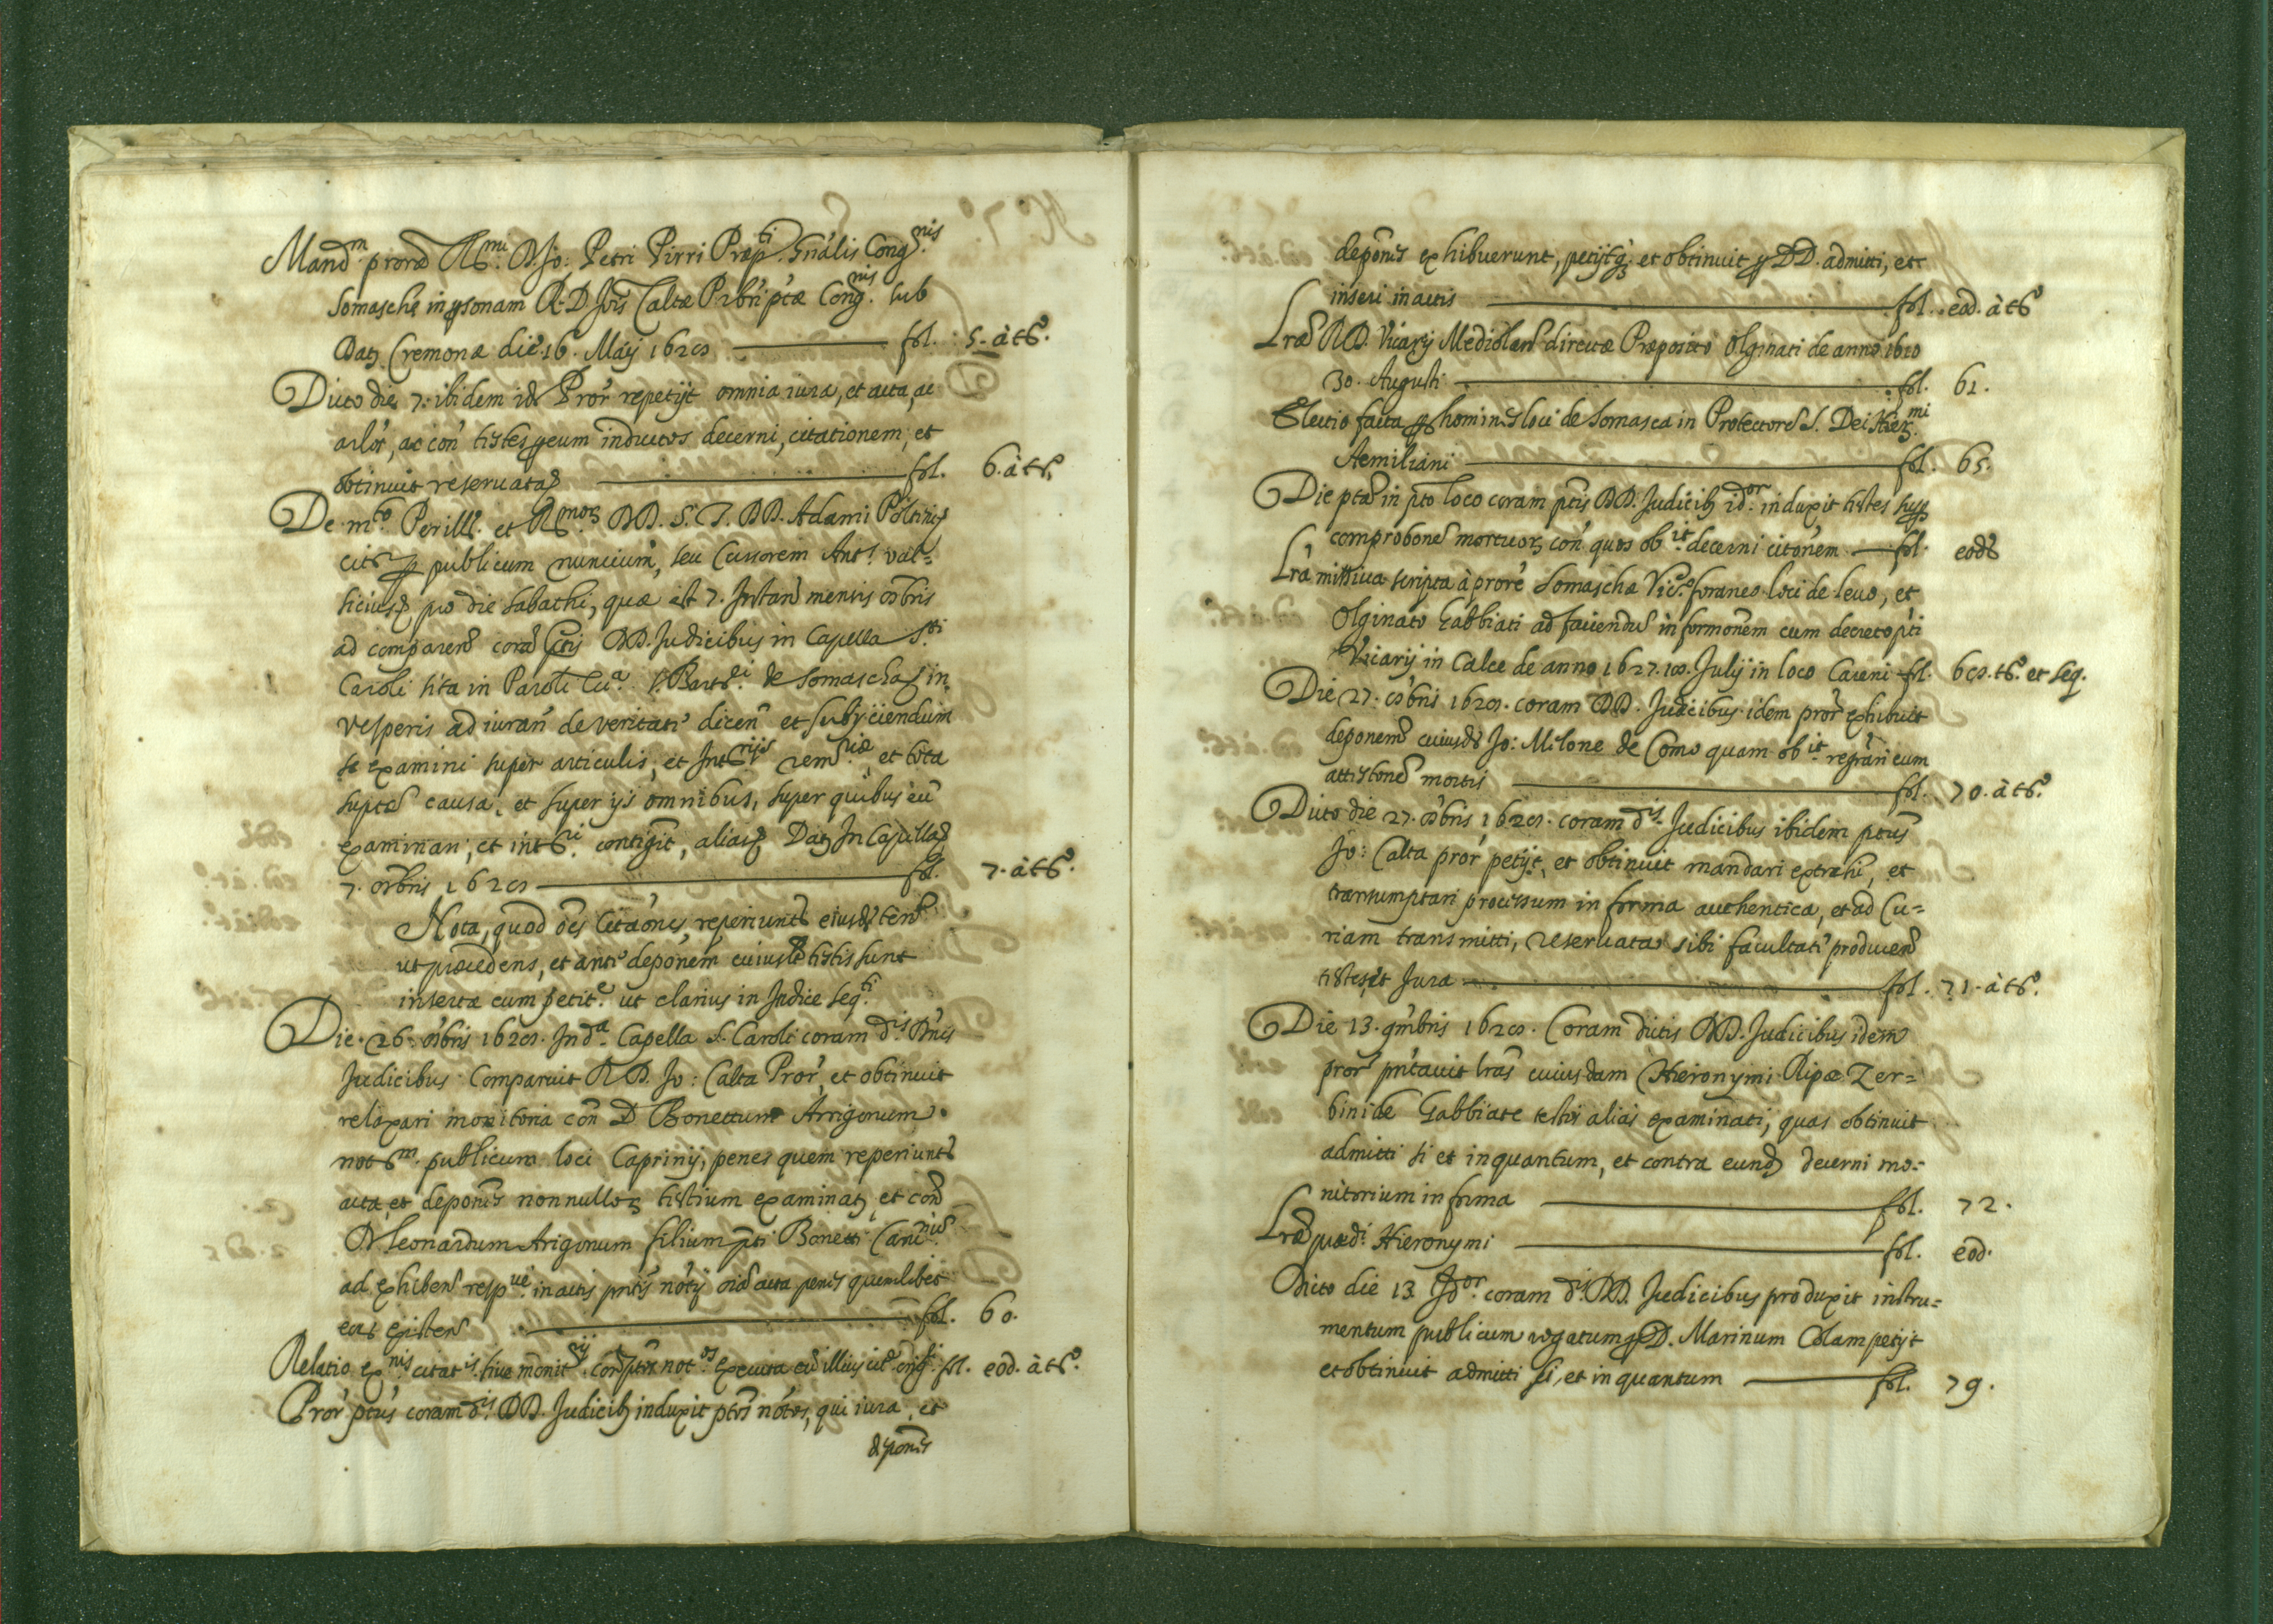 Mand.m proræ R.mi D. Jo: Petri Pirri Præp.ti Gnalis Cong.nis
Somaschę in psonam R. D. Jois Caltæ Prbri ptæ Cong.nis sub
Dat Cremonæ die 16. Maij 1628 fol. 5. à tg.o
Dicto die 7. ibidem id Pror repetijt omnia iura, et acta, ac
ac con testes p eum inductos decerni, citationem, et
obtinuit reservata fol. 6. à tg.
De m.to Perill. et R.mor DD. S. T. DD. Adami
citr p publicum nuncium, seu Cursorem Ant.
pro die Sabathi, quæ est 7. Instan mensis 8bris
ad comparen cora ptis DD. Judicibus in Capella S.ti
Caroli sita in Paroli S. Bart.i de Somascha in
vesperis ad iuran de veritati dicen et subijciendum
se examini super articulis, et Int.rijs rem.riæ et tota
supta causa, et super ijs omnibus, super quibus eu
examinari, et int.ri contigit, alias Dat In Capella
7. 8bris 1628 fol. 7. à tg.o
Nota, quod oes Citaones reperiunt eiusd ten.
ut præcedens, et ante deponem cuiuslt testis sunt
insertæ cum petit.e ut clarius in Indice seq.ti
Die 26. 8bris 1628. In d.a Capella S. Caroli coram d.is Dnis
Judicibus Comparuit R. D. Jo: Calta Pror, et obtinuit
relaxari monitoria con D. Bonettum Arrigonum
not.m publicum loci Caprinij, penes quem reperiunt
acta, et depones nonnullor testium examinat, et con
D. Leonardum Arigonum filium pti Bonetti
ad exhiben resp.ve in actis pntis notij oia acta penes quemlibet
eor existen fol. 60.
Relatio ex.nis citat.is sive monit.rij con ptos not.os executa fol. eod. à tg.o
Pror ptus coram d.is DD. Judicib induxit ptos notos, qui iura, et
depones
depones exhibuerunt, petijtq; et obtinuit p DD. admitti, et
inseri in actis fol. eod. à tg.o
Lræ R. D. Vicarij Mediolan directæ Præposito Olginati de anno 1610
30. Augusti fol. 61.
Electio facta p homines loci de Somasca in Protectore S. Dei Hier.mi
Aemiliani fol. 65.
Die pta in pto loco coram ptis DD. Judicib id.or induxit testes sup
comprobone mortuor con quos ob.it decerni citonem fol. eod
Lra missiva scripta à prore Somaschæ Vic.o foraneo loci de Leuo, et
Olginato Gabbiati ad faciendu informonem cum decreto pti
Vicarij in Calce de anno 1627. 18. Julij in loco Careni fol. 68. tg.o et seq.
Die 27. 8bris 1628. coram DD. Judicibus idem pror exhibuit
deponem cuiusd Jo: Milone de Como quam ob.it regrari cum
attestone mortis fol. 70. à tg.o
Dicto die 27. 8bris 1628. coram d.is Judicibus ibidem ptus
Jo: Calta pror petijt, et obtinuit mandari extrahi, et
transumptari processum in forma authentica, et ad Cu=
riam transmitti, reservata sibi facultati producen
testes, et Jura fol. 71. à tg.o
Die 13. 9mbris 1628. Coram dictis DD. Judicibus idem
pror pntavit lras cuiusdam Hieronymi Ripæ Zer=
bini de Gabbiate testis alias examinati, quas obtinuit
admitti si et inquantum, et contra eund decerni mo=
nitorium in forma fol. 72.
Lræ præd.i Hieronymi fol. eod.
Dicto die 13. Id.or coram d.is DD. Judicibus produxit instru=
mentum publicum rogatum p D. Marinum Colam petijt
et obtinuit admitti si, et in quantum fol. 79.